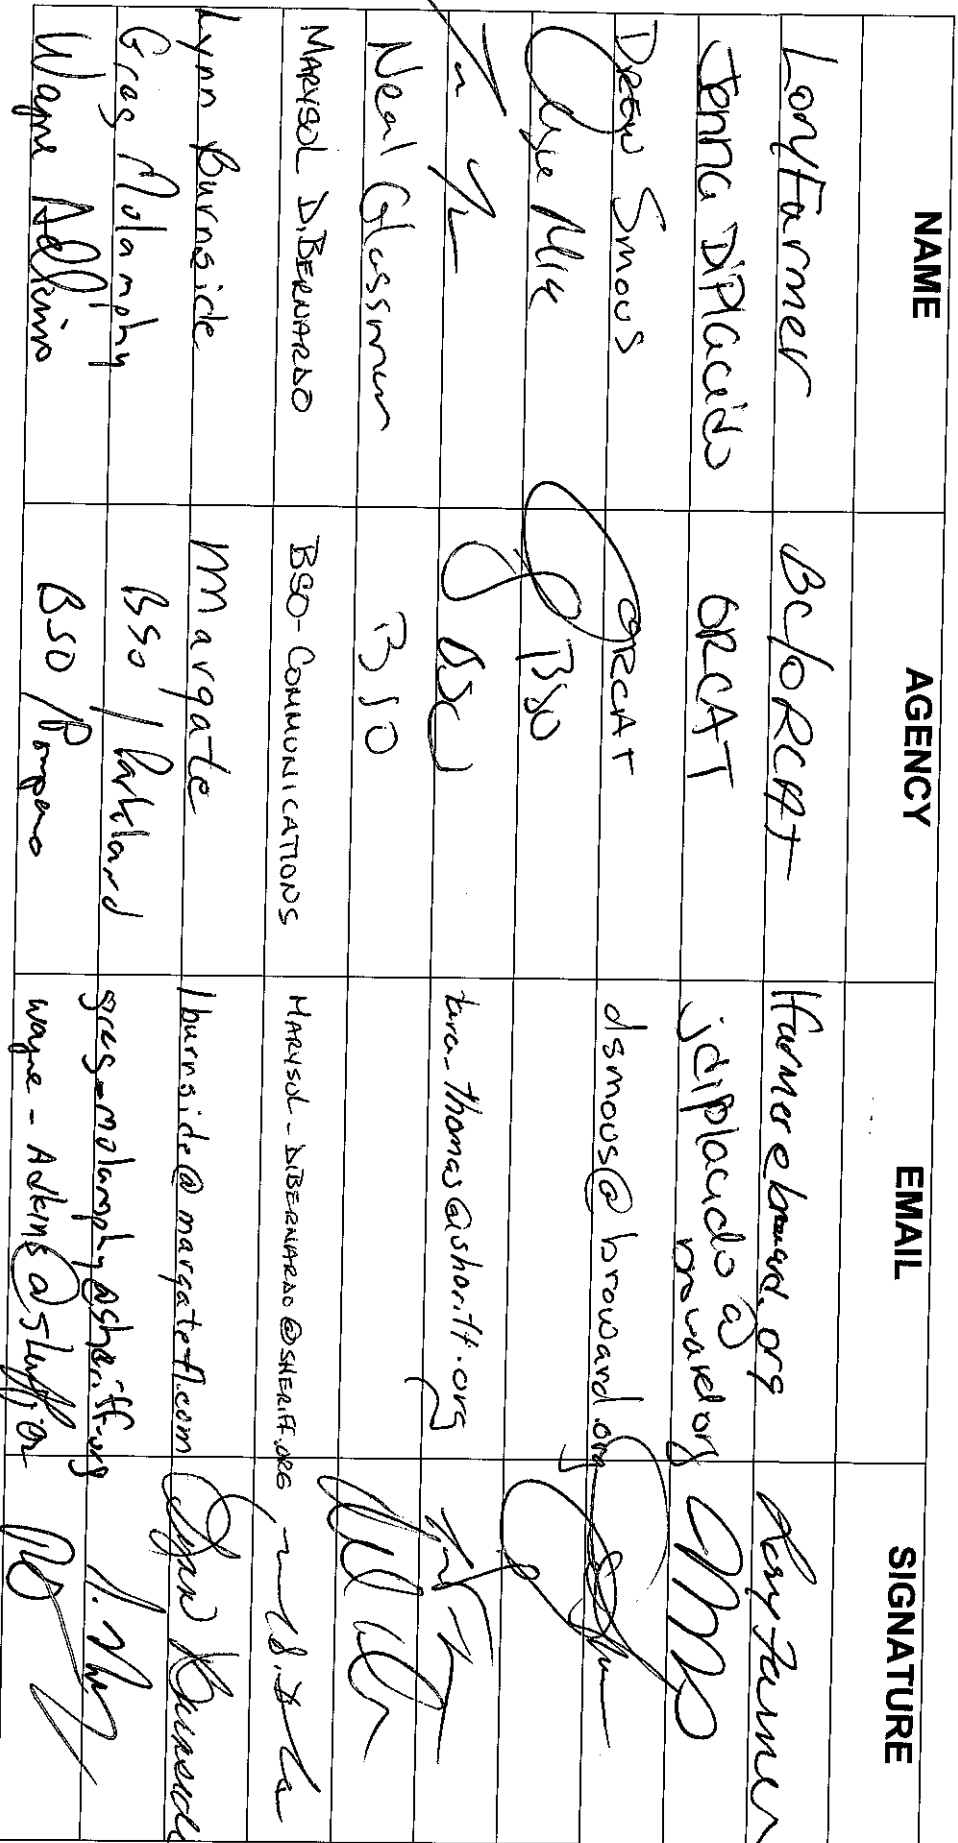 NAME AGENCY EMAIL SIGNATURE
Lory Farmer BC/ORCAT lfarmer@broward.org Lory Farmer
Jenna DiPlacido ORCAT jdiplacido@broward.org
Drew Smous ORCAT dsmous@broward.org
BSO
BSO tara_thomas@sheriff.org
Neal Glassman BSO
MARYSOL DIBERNARDO BSO-COMMUNICATIONS MARYSOL_DIBERNARDO@SHERIFF.ORG
Lynn Burnside Margate lburnside@margatefl.com Lynn Burnside
Greg Molamphy BSO/Parkland greg_molamphy@sheriff.org
Wayne Adkins BSO/Pompano wayne_Adkins@sheriff.org